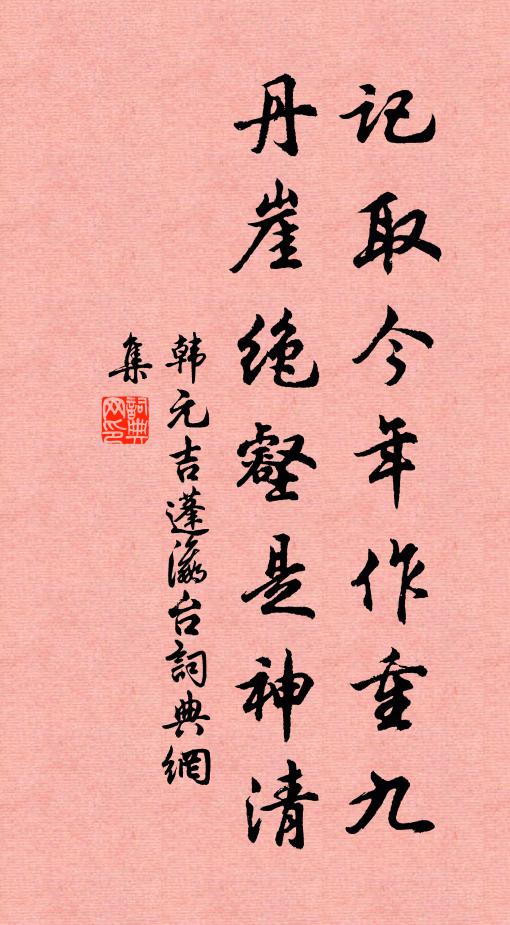 記取今年作重九
丹崖絶壑是神清
韩元吉蓬瀛台詞典網
集
詞典
网印